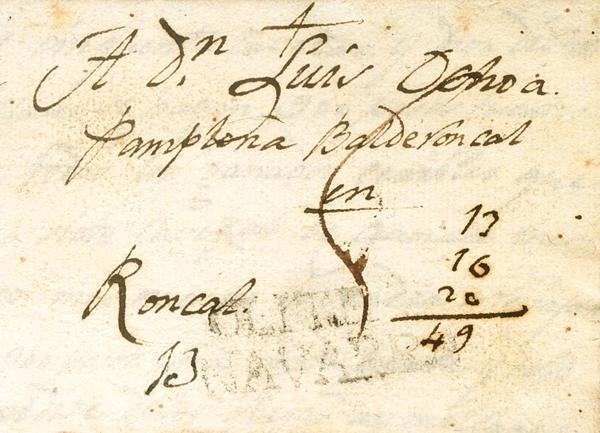 A D.n Luis Ochoa.
Pamplona Balderoncal
en
13
16
Roncal.
20
49
OLITE
NAVARRA
13